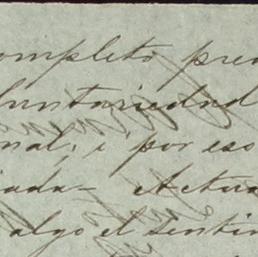 completo pre
luntariedad
nal; i por eso
iada- Actua
algo el sentim